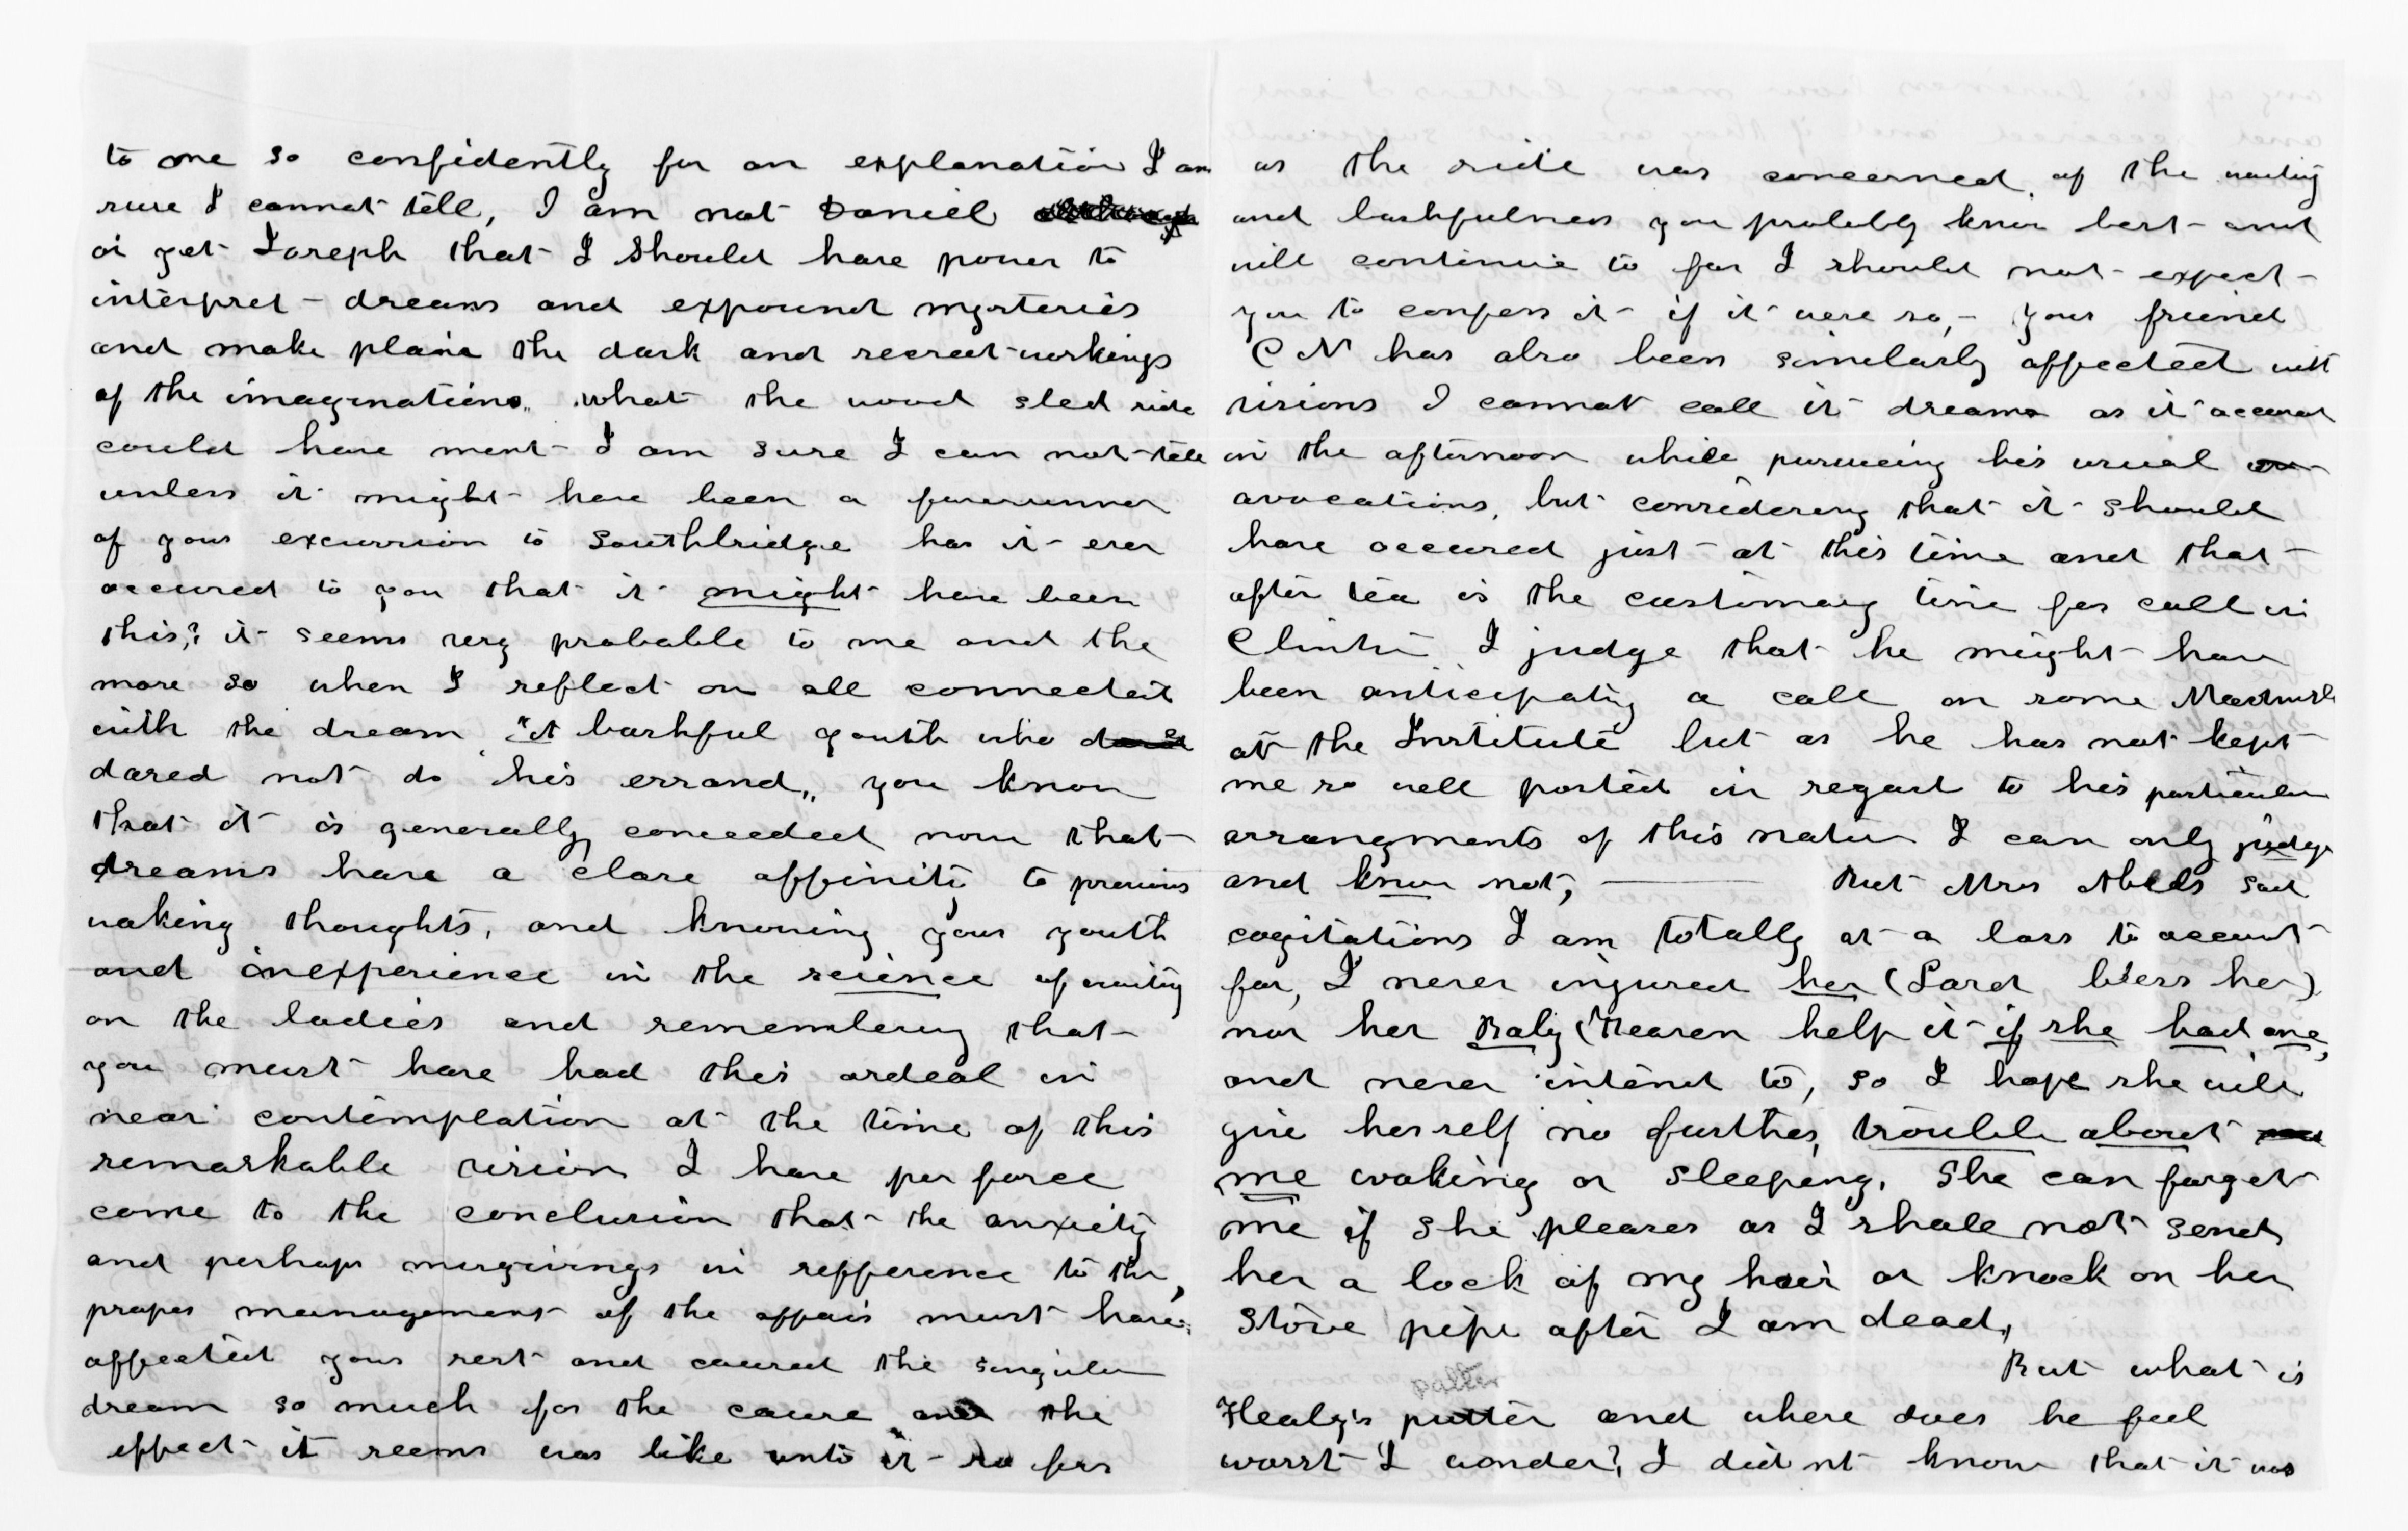 to me so confidently for an explanation I am
sure I cannot tell, I am not Daniel
or yet Joseph that I should have power to
interpret dreams and expound mysteries
and make plain the dark and secreet workings
of the imaginations. what the wood sled ride
could have ment I am sure I can not tell
unless it might have been a forerunner
of your excursion to Southbridge has it ever
occured to you that it might have been
this? it seems very probable to me and the
more so when I reflect on all connected
with the dream "A bashful youth who
dared not do his errand" you know
that it is generally conceeded now that
dreams have a close affinity to previous
waking thoughts, and knowing your youth
and inexperience in the science of waiting
on the ladies and remembering that
you must have had this ordeal in
near contemplation at the time of this
remarkable vision I have per force
come to the conclusion that the anxiety
and perhaps misgivings in refference to the
proper management of the affair must have
affected your rest and caused the singular
dream so much for the cause and the
effect it seems was like unto it so far
as the ride was concerned, of the waiting
and bashfulness you probably know best and
will continue to for I should not expect
you to confess it if it were so, - Your friend
C N has also been similarly affected with
visions I cannot call it dreams as it occured
in the afternoon while pursueing his usual
avocations, but considering that it should
have occured just at this time and that
after tea is the customary time for call in
Clinton I judge that he might have
been anticipating a call on some
at the Institute but as he has not kept
me so well posted in regard to his particular
arrangments of this nature I can only judge
and know not, — But Mrs Abells sad
cogitations I am totally at a loss to account
for, I never injured her (Lord bless her)
nor her Baby (Heaven help it if she had one,
and never intend to, so I hope she will
give herself no further, trouble about
me waking or sleeping. She can forget
me if she pleases as I shall not send
her a lock of my hair or knock on her
stove pipe after I am dead,
But what is
patter
Healy's putter and where does he feel
worst I wonder? I did nt know that it was